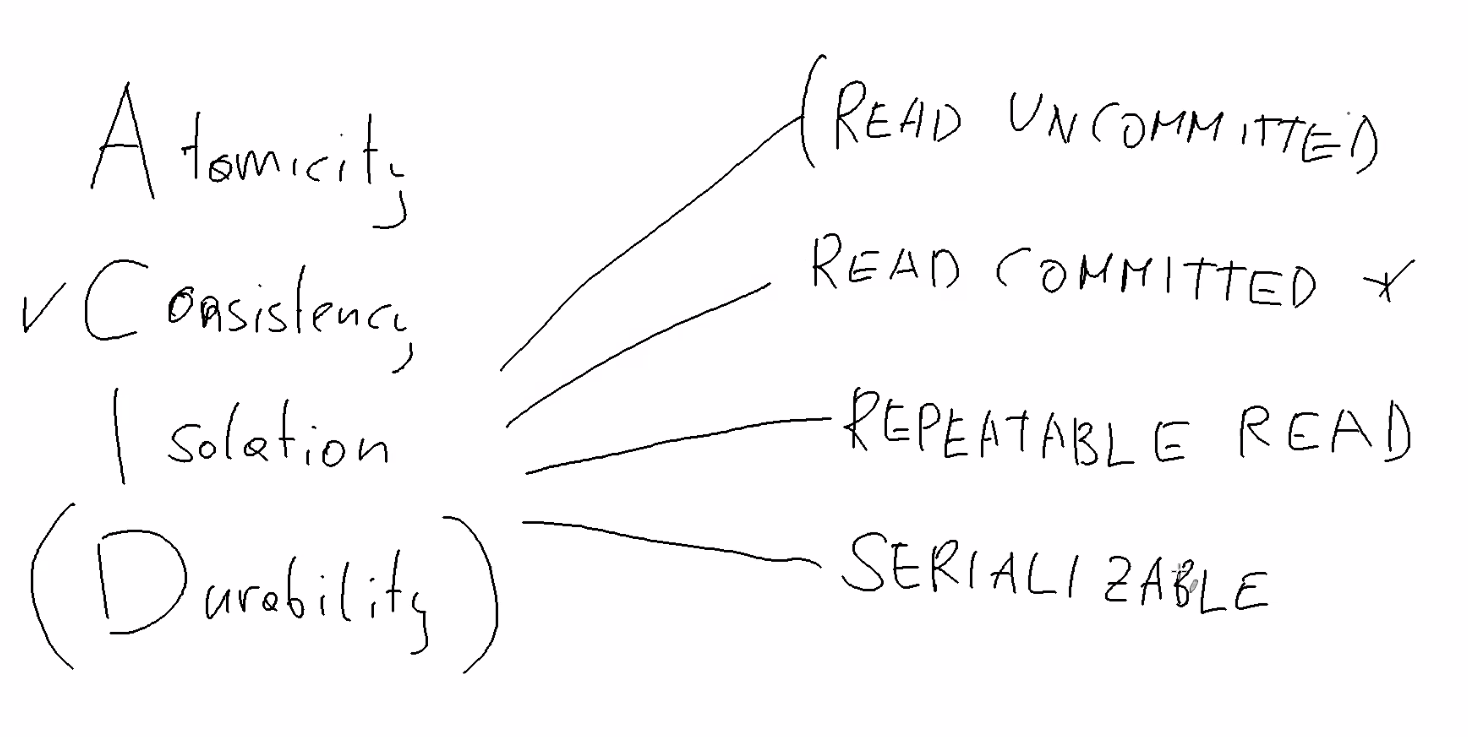 Atomicity
✓ Consistency
Isolation
(Durability)
(READ UNCOMMITTED
READ COMMITTED *
REPEATABLE READ
SERIALIZABLE